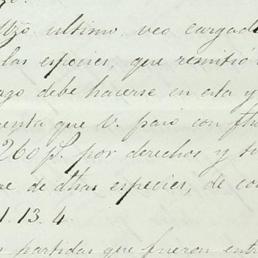 ltzo ultimo veo cargado
las especies, que remitió
ago debe hacerse en esta y
enta que V. paso con fh
260 p.s por derechos y
e de dhas especies, de co
1. 13. 4
partidas que fueron ent